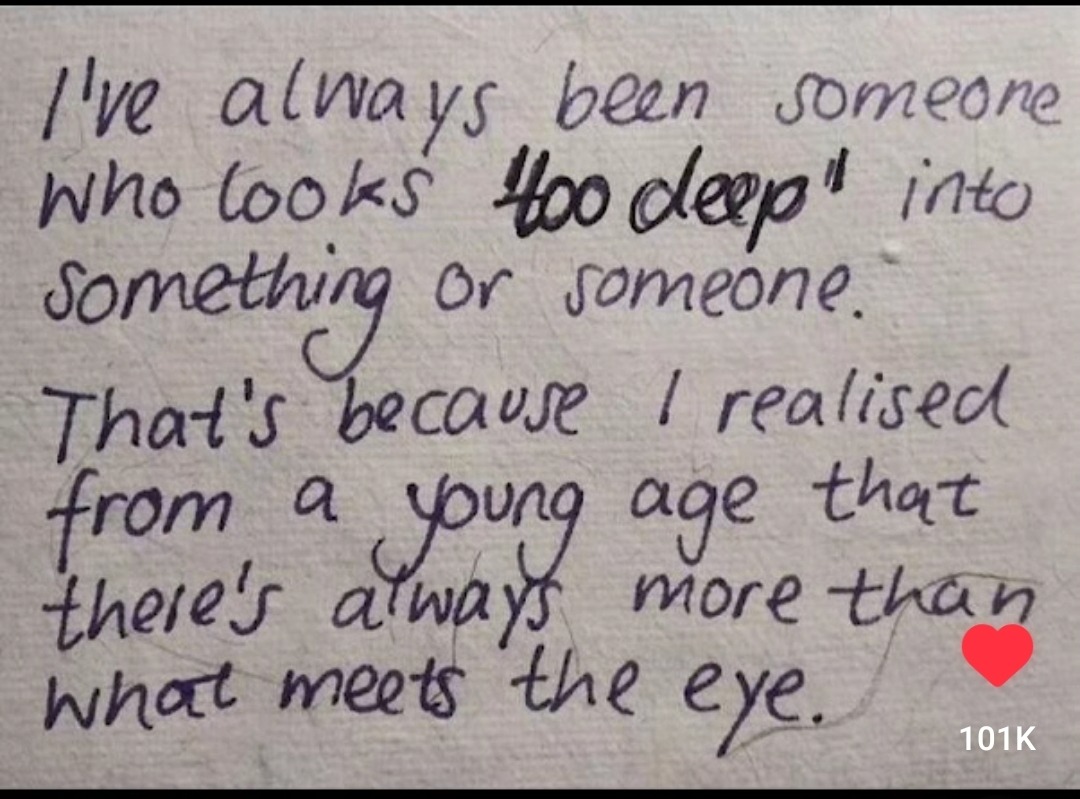 I've always been someone
who looks "too deep" into
something or someone.
That's because I realised
from a young age that
there's always more than
what meets the eye.
101K